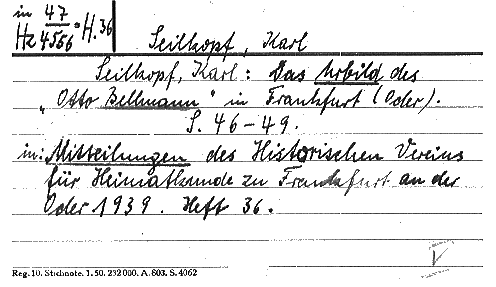 in 47
Hz 4566 : H. 36
Seilkopf, Karl
Seilkopf, Karl: Das Urbild des
„Otto Bellmann" in Frankfurt (Oder).
S. 46-49.
in: Mitteilungen des Historischen Vereins
für Heimatkunde zu Frankfurt an der
Oder 1939. Heft 36.
Reg. 10. Stichnote. 1. 50. 232 000. A. 603. S. 4062